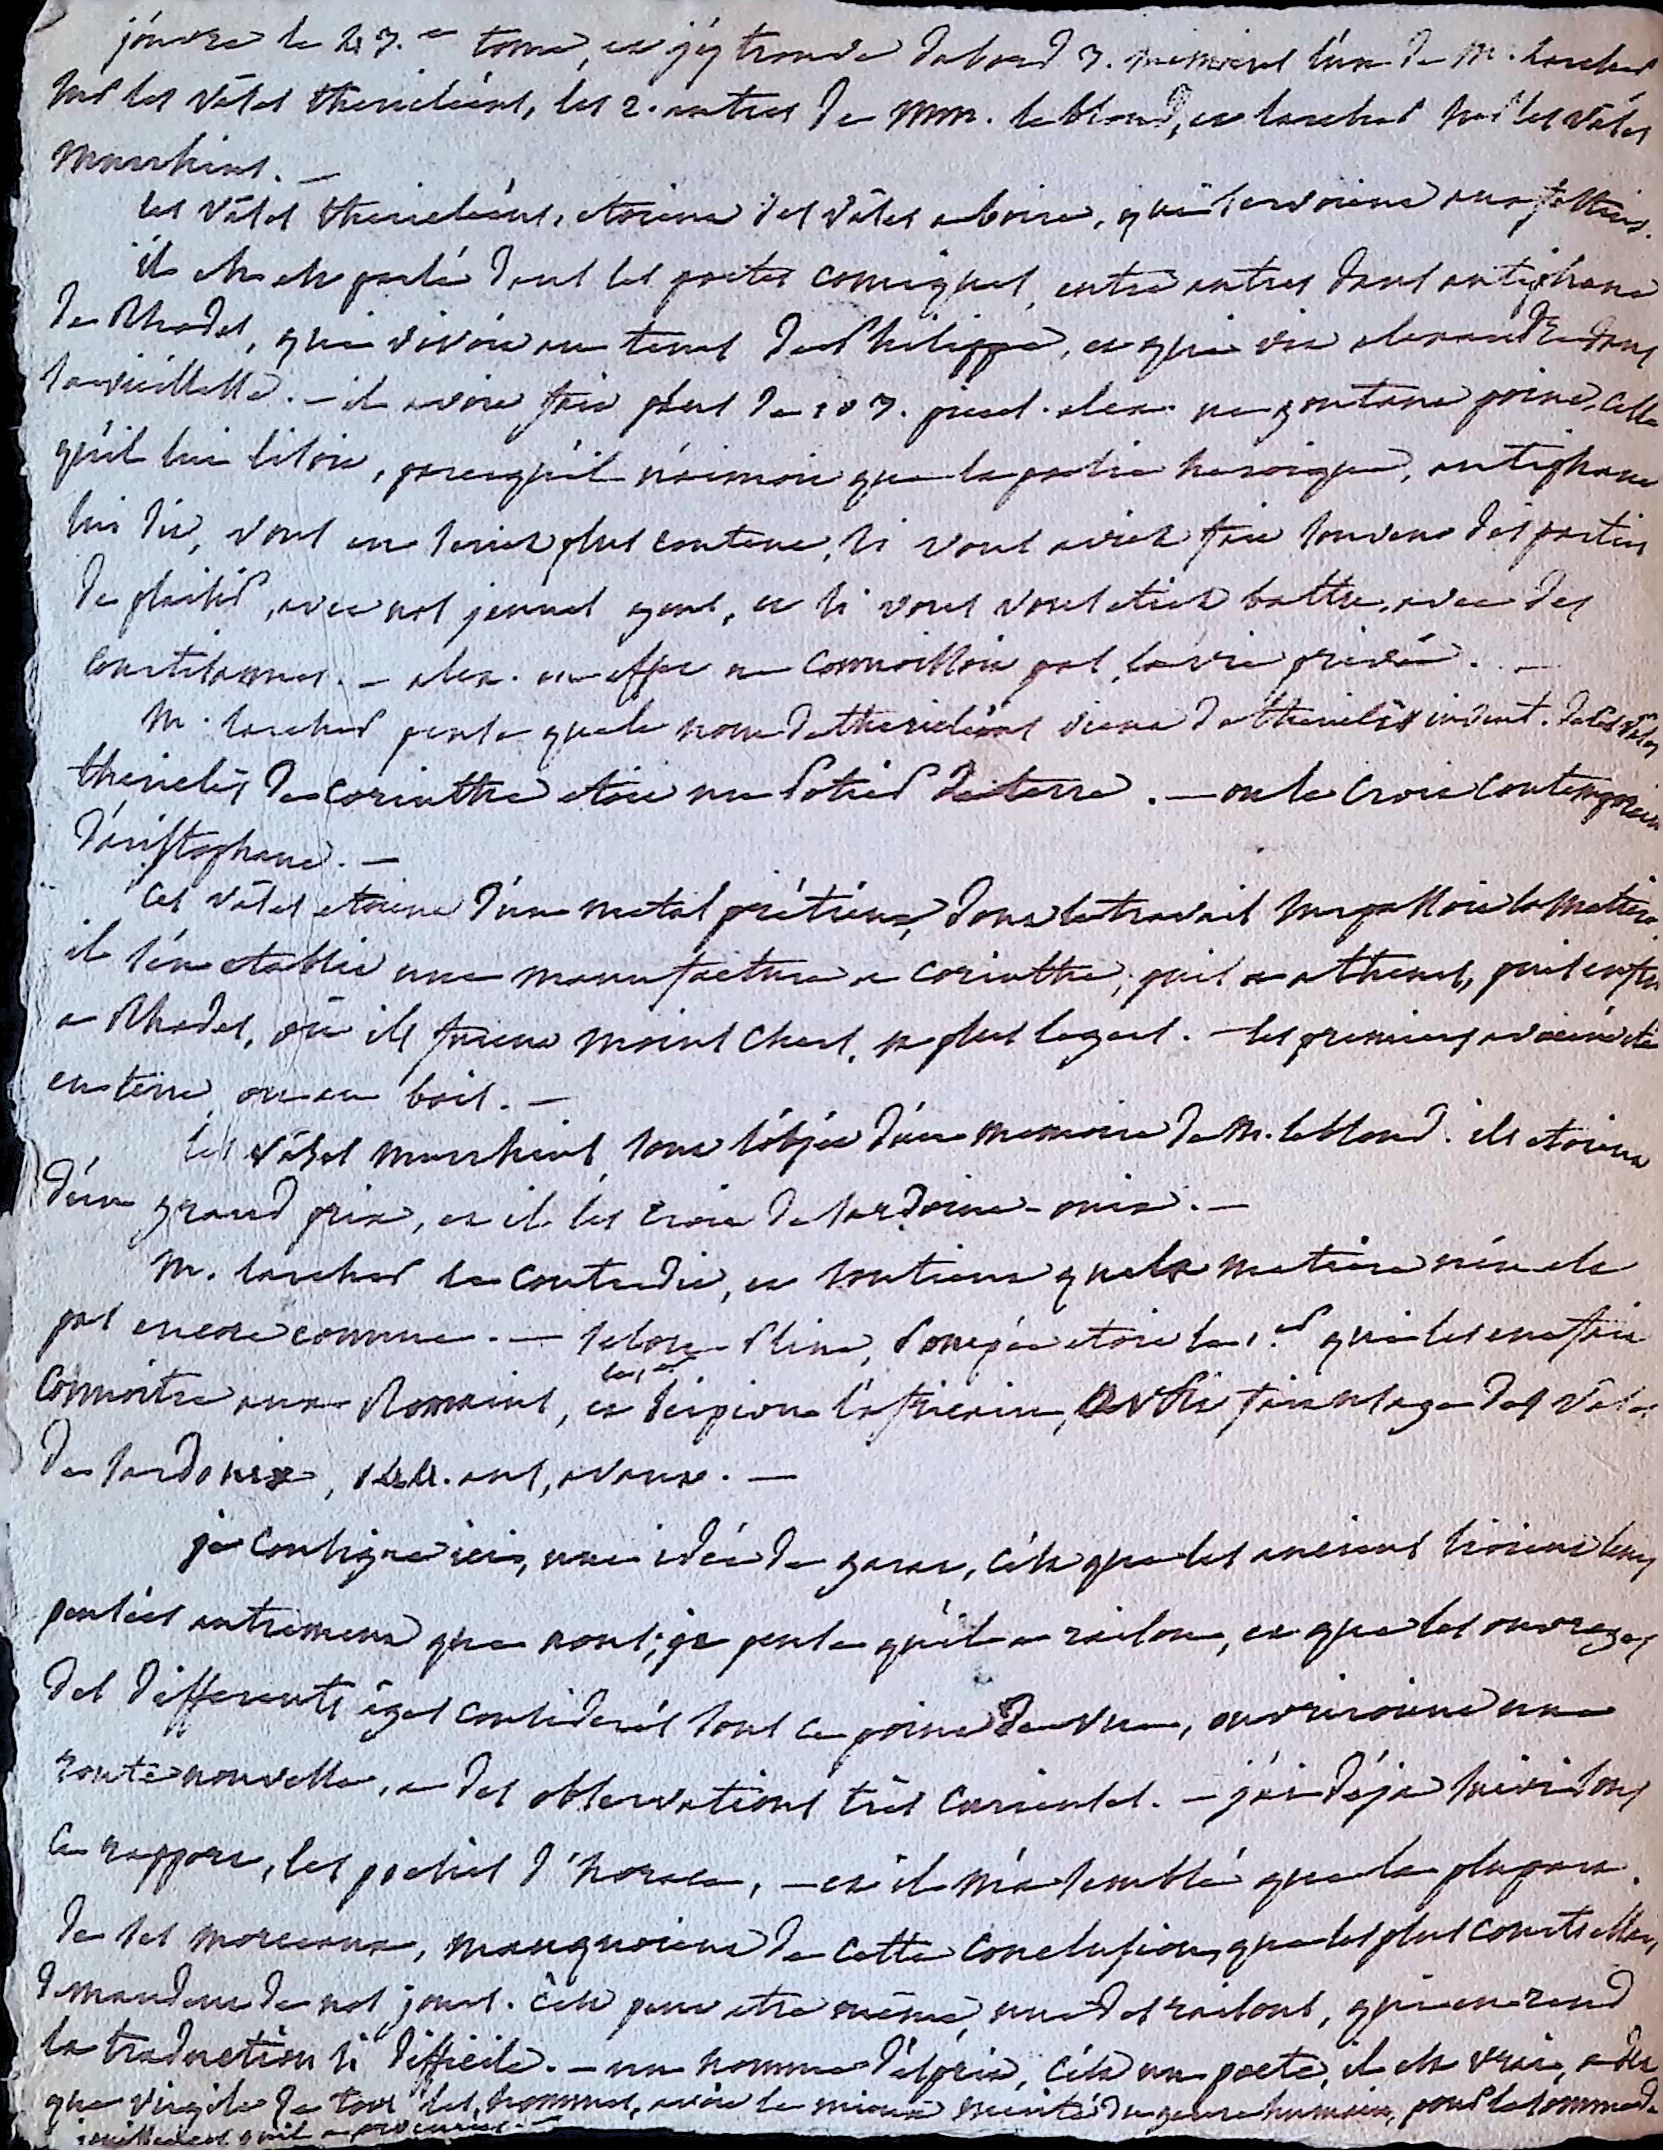 j'ouvre le 43.e tome, et j'y trouve d'abord 3. memoires l'un de M. larcher
sur les vâses thericléens, les 2. autres de MM. leblond, et larcher sur les vâses
murrhins. —
les vâses thericléens, etoient des vâses a boire, qui servoient aux festins.
il en est parlé dans les poetes comiques, entre autres dans antiphane
de Rhodes, qui vivoit au tems de Philippe, et qui vit alexandre dans
sa vieillesse. — il avoit fait plus de 103. pieces. alex. ne goutant point, celle
qu'il lui lisoit, parcequ'il n'aimoit que la poesie heroique, antiphane
lui dit, vous en seriez plus content, si vous aviez fait souvent des parties
de plaisir, avec nos jeunes gens, et si vous vous etiez battu, avec des
courtisannes. — alex. en effet ne connoissoit pas, la vie privée. —
M. larcher pense que le nom de thericléens vient de thericlès invent. de ces vâses
thericlès de corinthe etoit un Potier de terre. — on le croit contemporain
d'aristophane. —
Ces vâses etoient d'un metal prétieux, dont le travail surpassoit la matiere.
il s'en etablit une manufacture a corinthe, puis a athenes, puis enfin
a Rhodes, où ils furent moins chers, et plus legers. — les premiers avoient été
en terre, ou en bois. —
Les vâses murrhins, sont l'objet d'un memoire de M. leblond. ils etoient
d'un grand prix, et il les croit de sardoine-onix. —
M. larcher le contredit, et soutient que la matiere n'en est
pas encore connue. — selon Pline, Pompée etoit le 1.er qui les eut fait
connoitre aux Romains, et scipion l'africain, le 1.er avoit fait usage des vâses
de sardonix, ans, avant. —
je consigne ici, une idée de garat, c'est que les anciens lioient leurs
pensées autrement que nous; je pense qu'il a raison, et que les ouvrages
des differents âges considerés sous ce point de vue, ouvriroient une
route nouvelle, a des observations très curieuses. — j'ai déja suivi sous
ce rapport, les poesies d'horace, — et il m'a semblé que la plupart
de ses morceaux, manquoient de cette conclusion, que les plus courts
demandent de nos jours. C'est peut etre même, une des raisons, qui en rend
la traduction si difficile. — un homme d'esprit, c'est un poete, il est vrai, a dit
que virgile de tous les hommes, avoit le mieux merité du genre humain, pour la somme de
jouissances qu'il a procurées. —